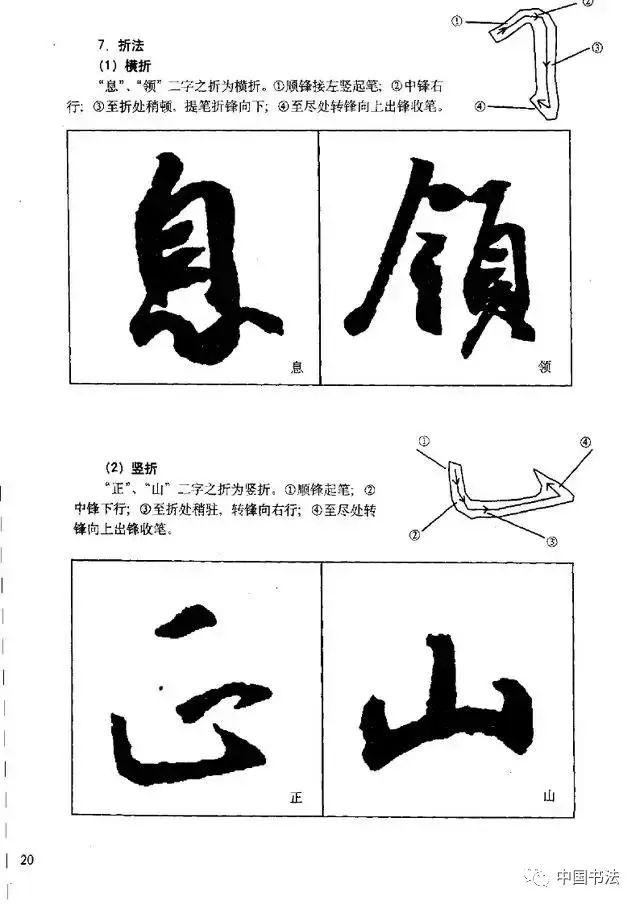 7. 折法
(1) 横折
“息”、“领”二字之折为横折。①顺锋接左竖起笔；②中锋右
行；③至折处稍顿，提笔折锋向下；④至尽处转锋向上出锋收笔。
① ② ③ ④
息 領
息 领
(2) 竖折
“正”、“山”二字之折为竖折。①顺锋起笔；②
中锋下行；③至折处稍驻，转锋向右行；④至尽处转
锋向上出锋收笔。
① ② ③ ④
正 山
正 山
20
中国书法